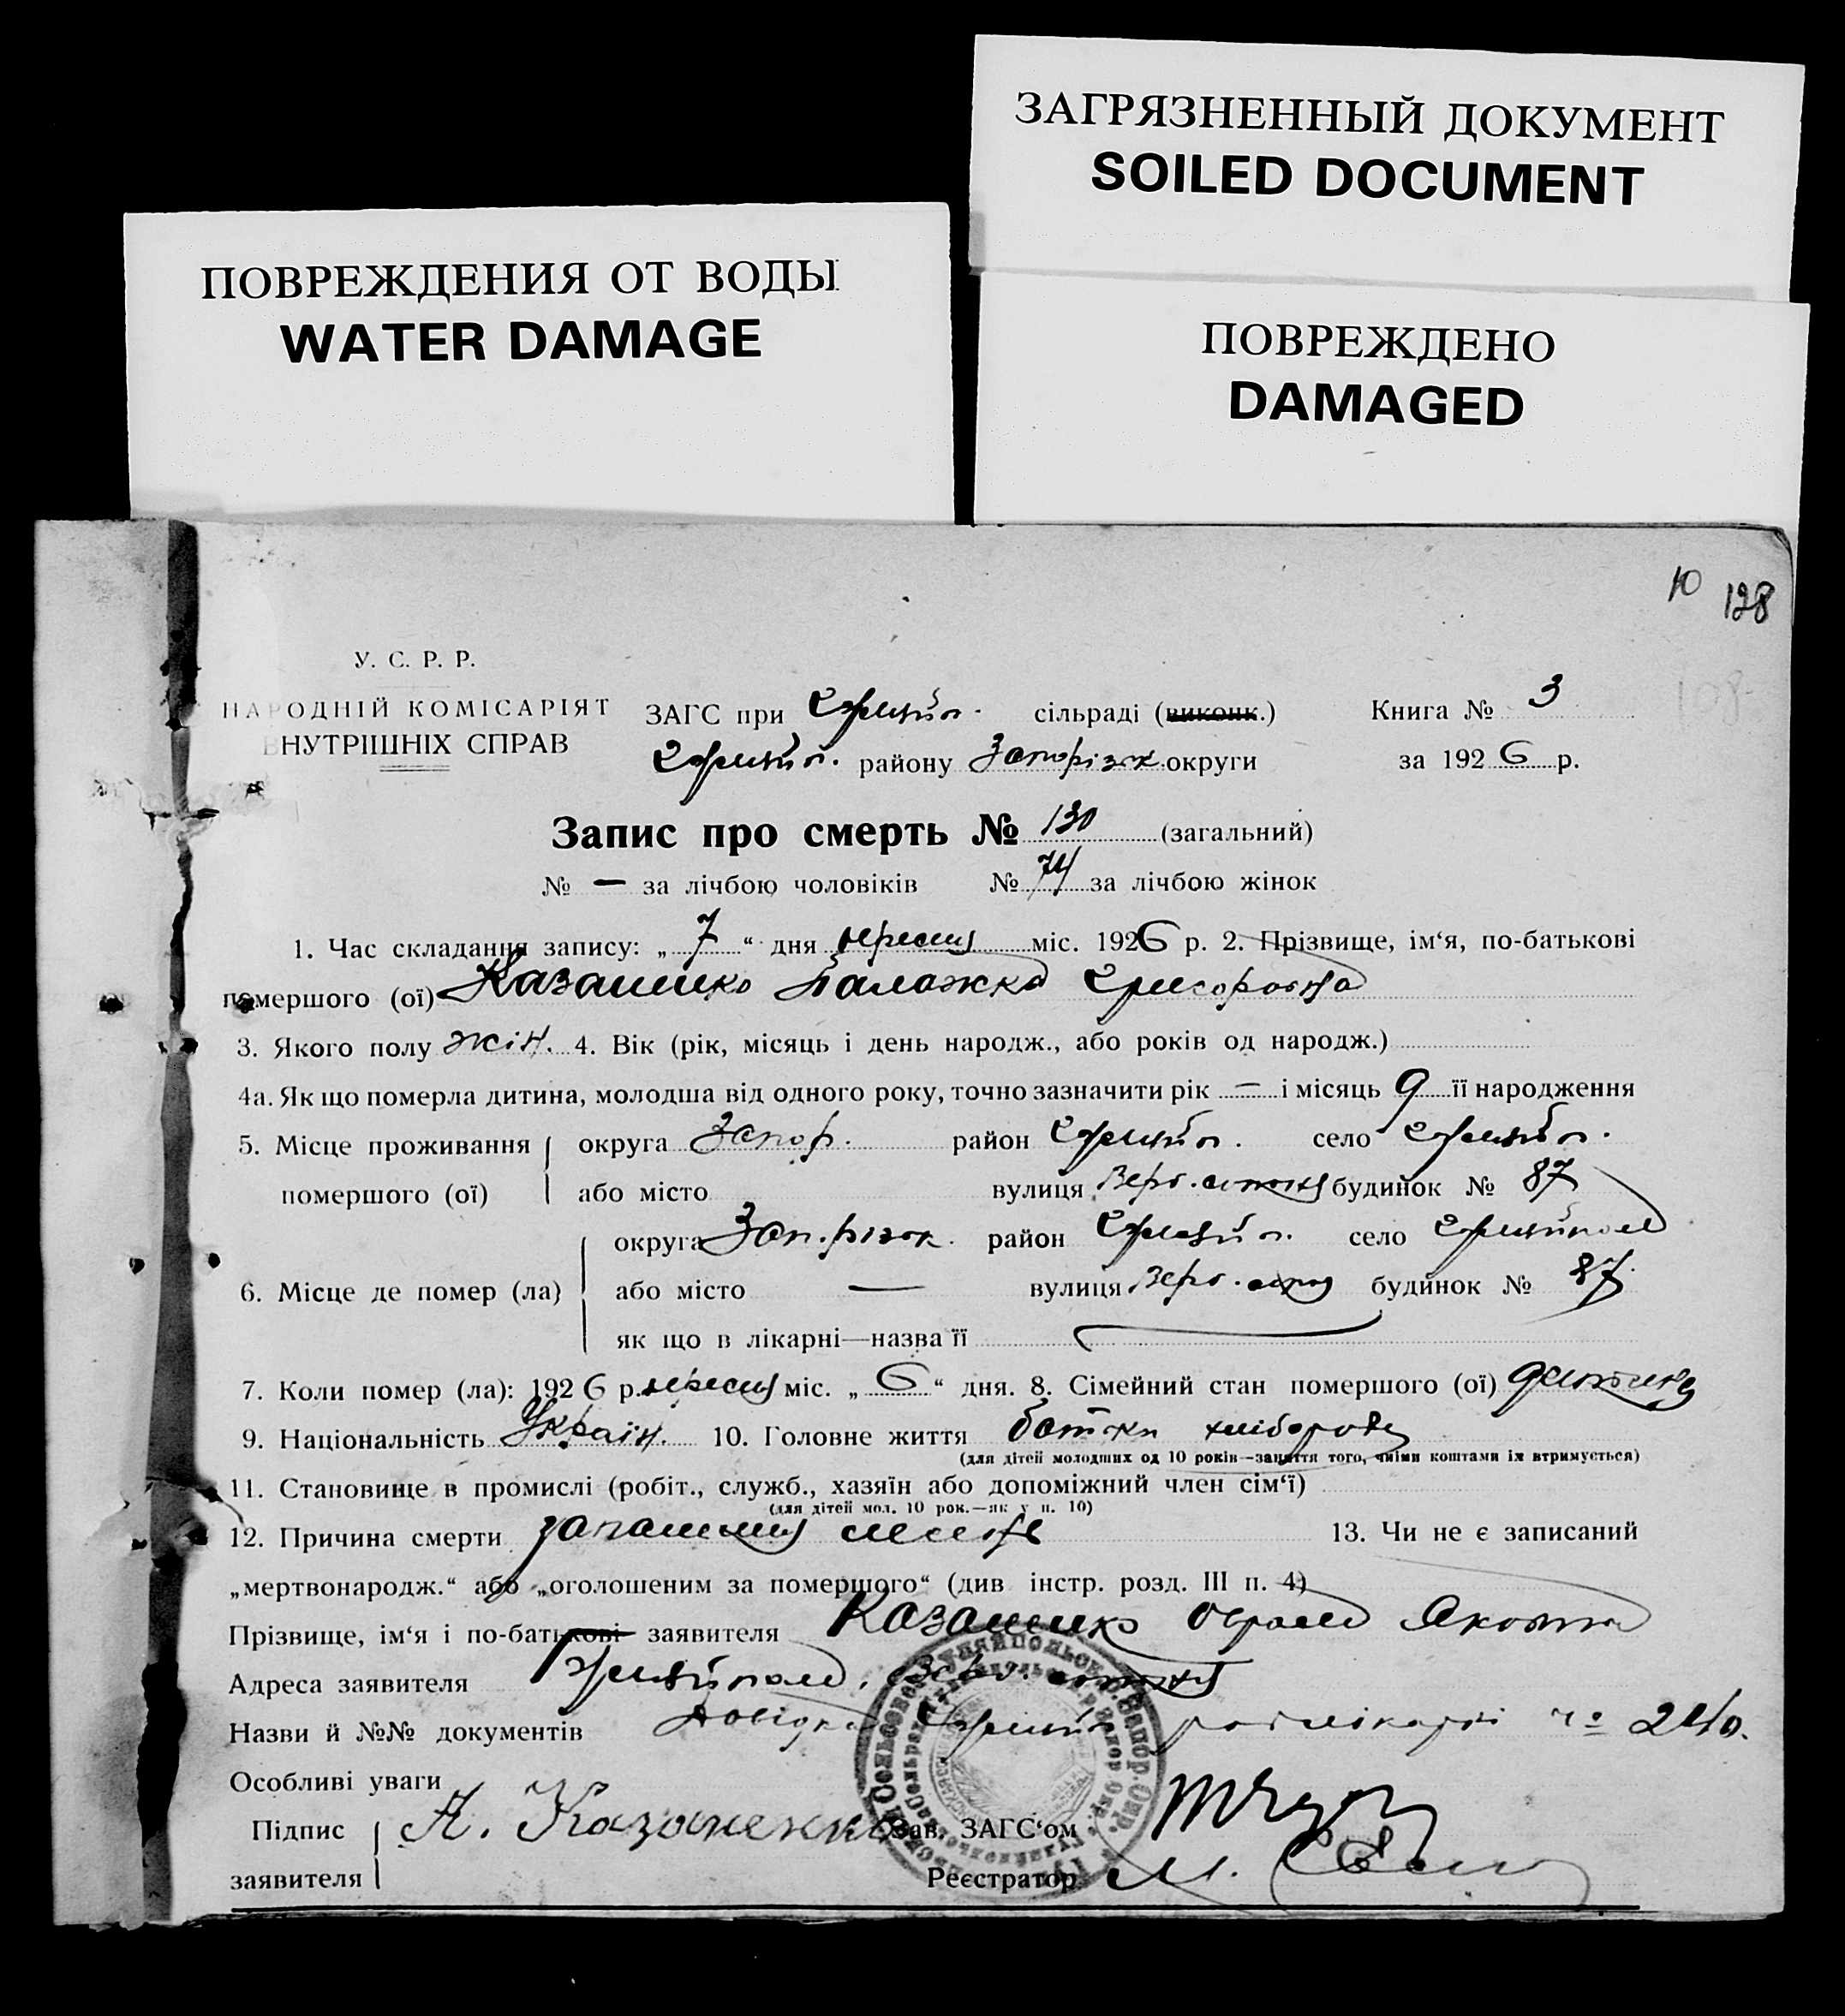 ЗАГРЯЗНЕННЫЙ ДОКУМЕНТ
SOILED DOCUMENT
ПОВРЕЖДЕНИЯ ОТ ВОДЫ
WATER DAMAGE
ПОВРЕЖДЕНО
DAMAGED
10 128
108
У. С. Р. Р.
НАРОДНІЙ КОМІСАРІЯТ
ВНУТРІШНІХ СПРАВ
ЗАГС при сільраді (виконк.)
району Запорізк округи
Книга № 3
за 1926 р.
Запис про смерть № 130 (загальний)
№ — за лічбою чоловіків № 74 за лічбою жінок
1. Час складання запису: „ 7 “ дня вересня міс. 1926 р. 2. Прізвище, ім‘я, по-батькові
помершого (ої) Казаненко Палажка Григоровна
3. Якого полу жін. 4. Вік (рік, місяць і день народж., або років од народж.)
4а. Як що померла дитина, молодша від одного року, точно зазначити рік — і місяць 9 її народження
5. Місце проживання округа Запор. район село
помершого (ої) або місто вулиця будинок № 87
округа Зап.різк. район село
6. Місце де помер (ла) або місто — вулиця будинок № 87
як що в лікарні—назва її
7. Коли помер (ла): 1926 р. вересня міс. „ 6 “ дня. 8. Сімейний стан помершого (ої) дитина
9. Національність Україн. 10. Головне життя батьки хлібороби
(для дітей молодших од 10 років—заняття того, чиїми коштами їх втримується)
11. Становище в промислі (робіт., служб., хазяїн або допоміжний член сім‘ї)
(для дітей мол. 10 рок.—як у п. 10)
12. Причина смерти запалення 13. Чи не є записаний
„мертвонародж.“ або „оголошеним за помершого“ (див інстр. розд. III п. 4)
Прізвище, ім‘я і по-батькові заявителя Казаненко Яковна
Адреса заявителя
Назви й №№ документів Довідка райлікарні № 240.
Особливі уваги
Підпис
заявителя
А. Казаненко
Зав. ЗАГС‘ом
Реєстратор